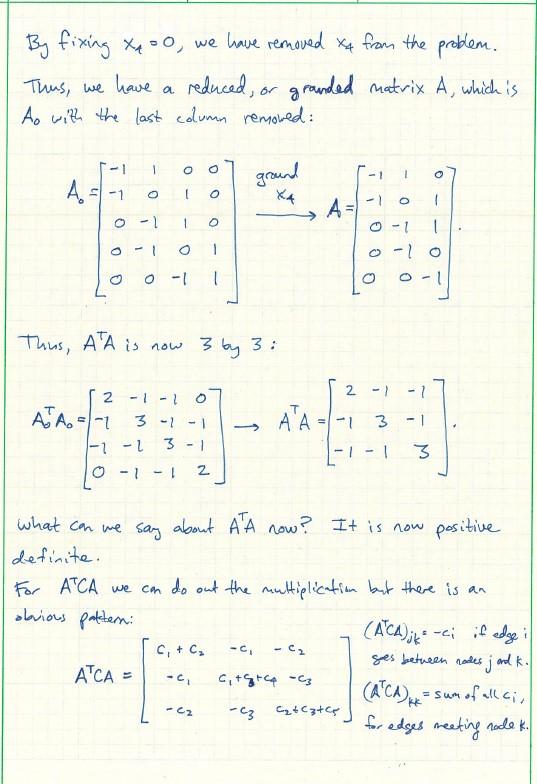 By fixing x₄ = 0, we have removed x₄ from the problem.
Thus, we have a reduced, or grounded matrix A, which is
A₀ with the last column removed:
A₀ = [ -1 1 0 0 ; -1 0 1 0 ; 0 -1 1 0 ; 0 -1 0 1 ; 0 0 -1 1 ] ground x₄ → A = [ -1 1 0 ; -1 0 1 ; 0 -1 1 ; 0 -1 0 ; 0 0 -1 ].
Thus, AᵀA is now 3 by 3:
A₀ᵀA₀ = [ 2 -1 -1 0 ; -1 3 -1 -1 ; -1 -1 3 -1 ; 0 -1 -1 2 ] → AᵀA = [ 2 -1 -1 ; -1 3 -1 ; -1 -1 3 ].
What can we say about AᵀA now? It is now positive
definite.
For AᵀCA we can do out the multiplication but there is an
obvious pattern:
AᵀCA = [ c₁ + c₂ -c₁ -c₂ ; -c₁ c₁+c₃+c₄ -c₃ ; -c₂ -c₃ c₂+c₃+c₅ ]
(AᵀCA)ⱼₖ = -cᵢ if edge i
goes between nodes j and k.
(AᵀCA)ₖₖ = sum of all cᵢ,
for edges meeting node k.